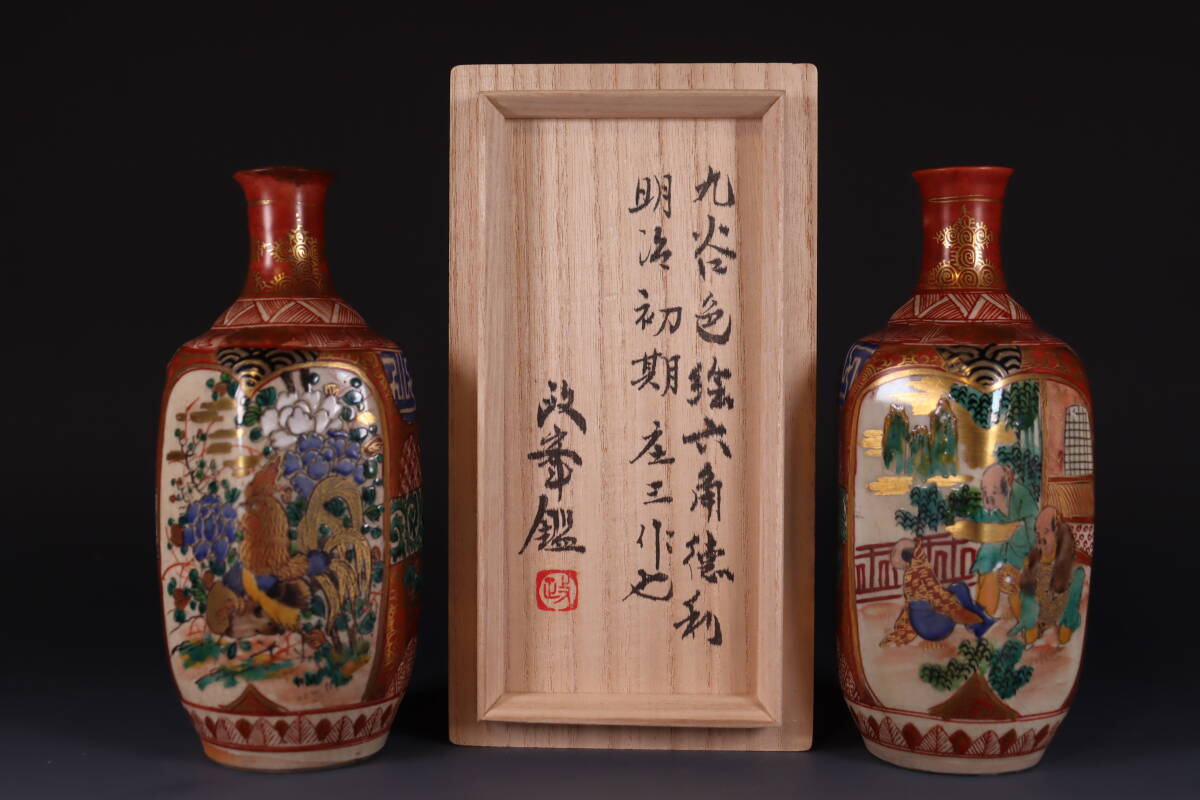 九谷色絵六角徳利
明治初期庄三作也
政峯鑑
政